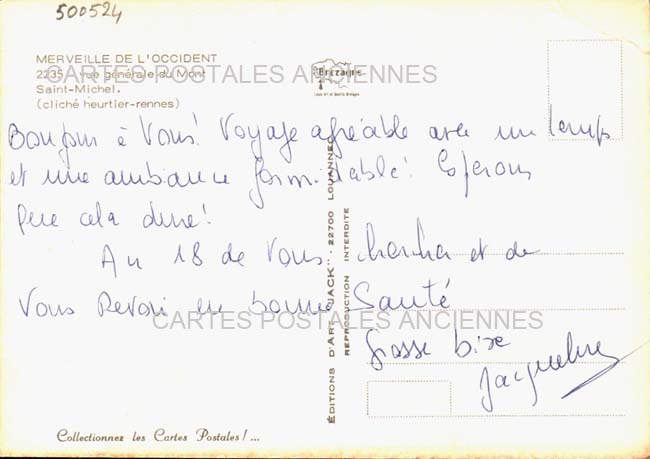 500524
MERVEILLE DE L'OCCIDENT
2235 - vue générale du Mont
Saint-Michel.
(cliché heurtier-rennes)
Bretagne
CARTES POSTALES ANCIENNES
Bonjour à Vous! Voyage agréable avec un temps
et une ambiance formidable! Espérons
que cela dure!
Au 18 de Vous chercher et de
Vous Revoir en bonne Santé
Grosse bise
Jacqueline
CARTES POSTALES ANCIENNES
ÉDITIONS D'ART "JACK" - 22700 LOUANNEC
REPRODUCTION INTERDITE
Collectionnez les Cartes Postales!...